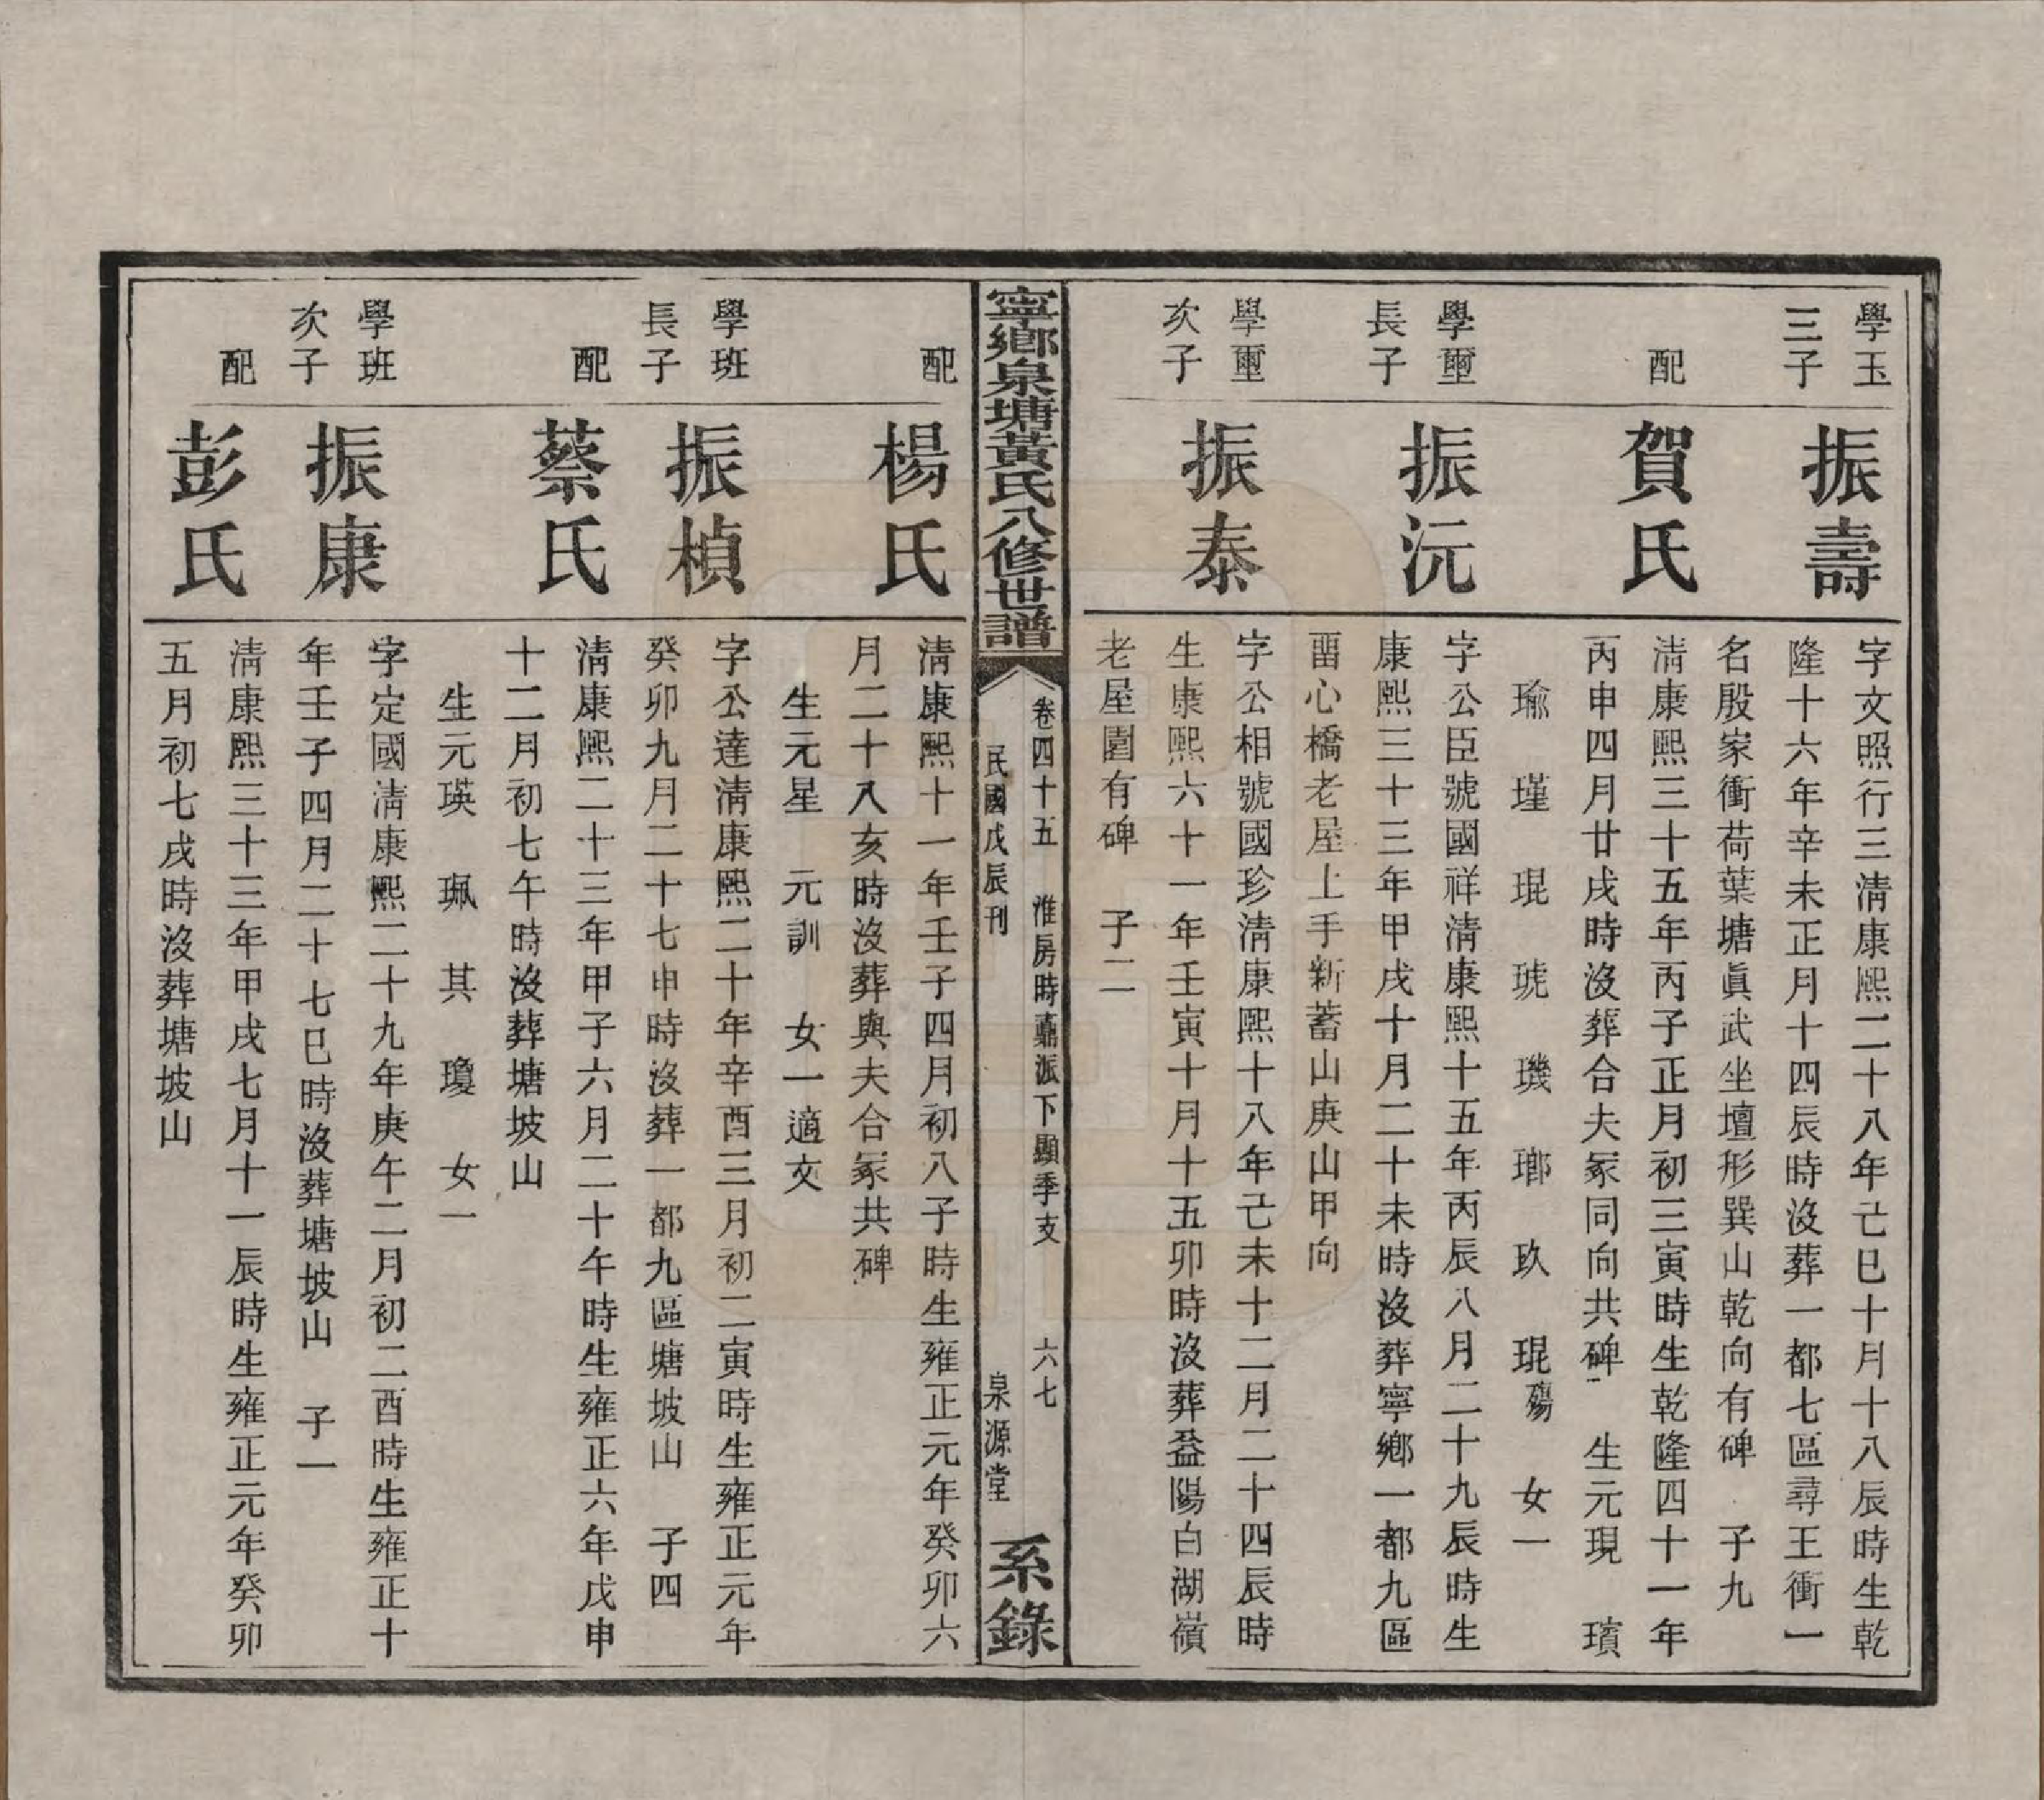 學玉
三子
振壽
字文照行三淸康熙二十八年己巳十月十八辰時生乾
隆十六年辛未正月十四辰時沒葬一都七區尋王衝一
名殷家衝荷葉塘眞武坐壇形巽山乾向有碑 子九
配
賀氏
淸康熙三十五年丙子正月初三寅時生乾隆四十一年
丙申四月廿戌時沒葬合夫冢同向共碑 生元現 璸
瑜 瑾 琨 琥 璣 瑯 玖 琨殤 女一
學璽
長子
振沅
字公臣號國祥淸康熙十五年丙辰八月二十九辰時生
康熙三十三年甲戌十月二十未時沒葬寧鄉一都九區
畱心橋老屋上手新蓄山庚山甲向
學璽
次子
振泰
字公相號國珍淸康熙十八年己未十二月二十四辰時
生康熙六十一年壬寅十月十五卯時沒葬益陽白湖嶺
老屋園有碑 子二
寧鄉泉塘黃氏八修世譜
卷四十五 淮房時鼒派下顯季支 六七
民國戊辰刊 泉源堂
系錄
配
楊氏
淸康熙十一年壬子四月初八子時生雍正元年癸卯六
月二十八亥時沒葬與夫合冢共碑
生元星 元訓 女一適文
學班
長子
振楨
字公達淸康熙二十年辛酉三月初二寅時生雍正元年
癸卯九月二十七申時沒葬一都九區塘坡山 子四
配
蔡氏
淸康熙二十三年甲子六月二十午時生雍正六年戊申
十二月初七午時沒葬塘坡山
生元瑛 珮 其 瓊 女一
學班
次子
振康
字定國淸康熙二十九年庚午二月初二酉時生雍正十
年壬子四月二十七巳時沒葬塘坡山 子一
配
彭氏
淸康熙三十三年甲戌七月十一辰時生雍正元年癸卯
五月初七戌時沒葬塘坡山